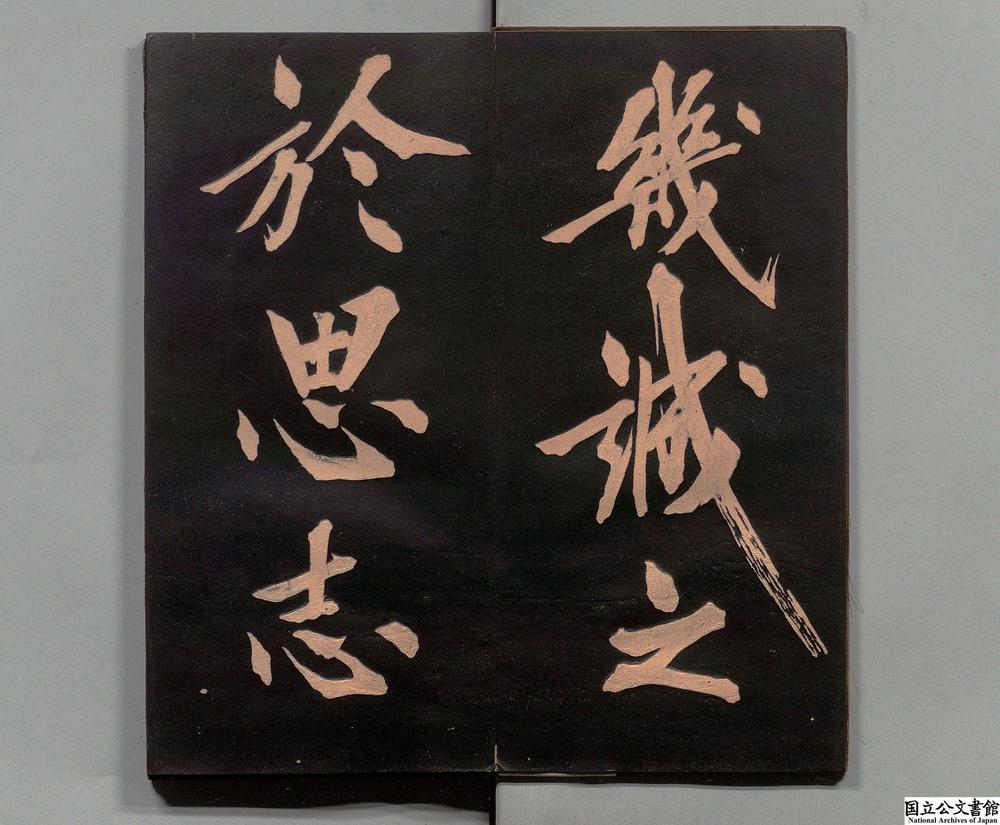 幾誠之
於思志
国立公文書館
National Archives of Japan